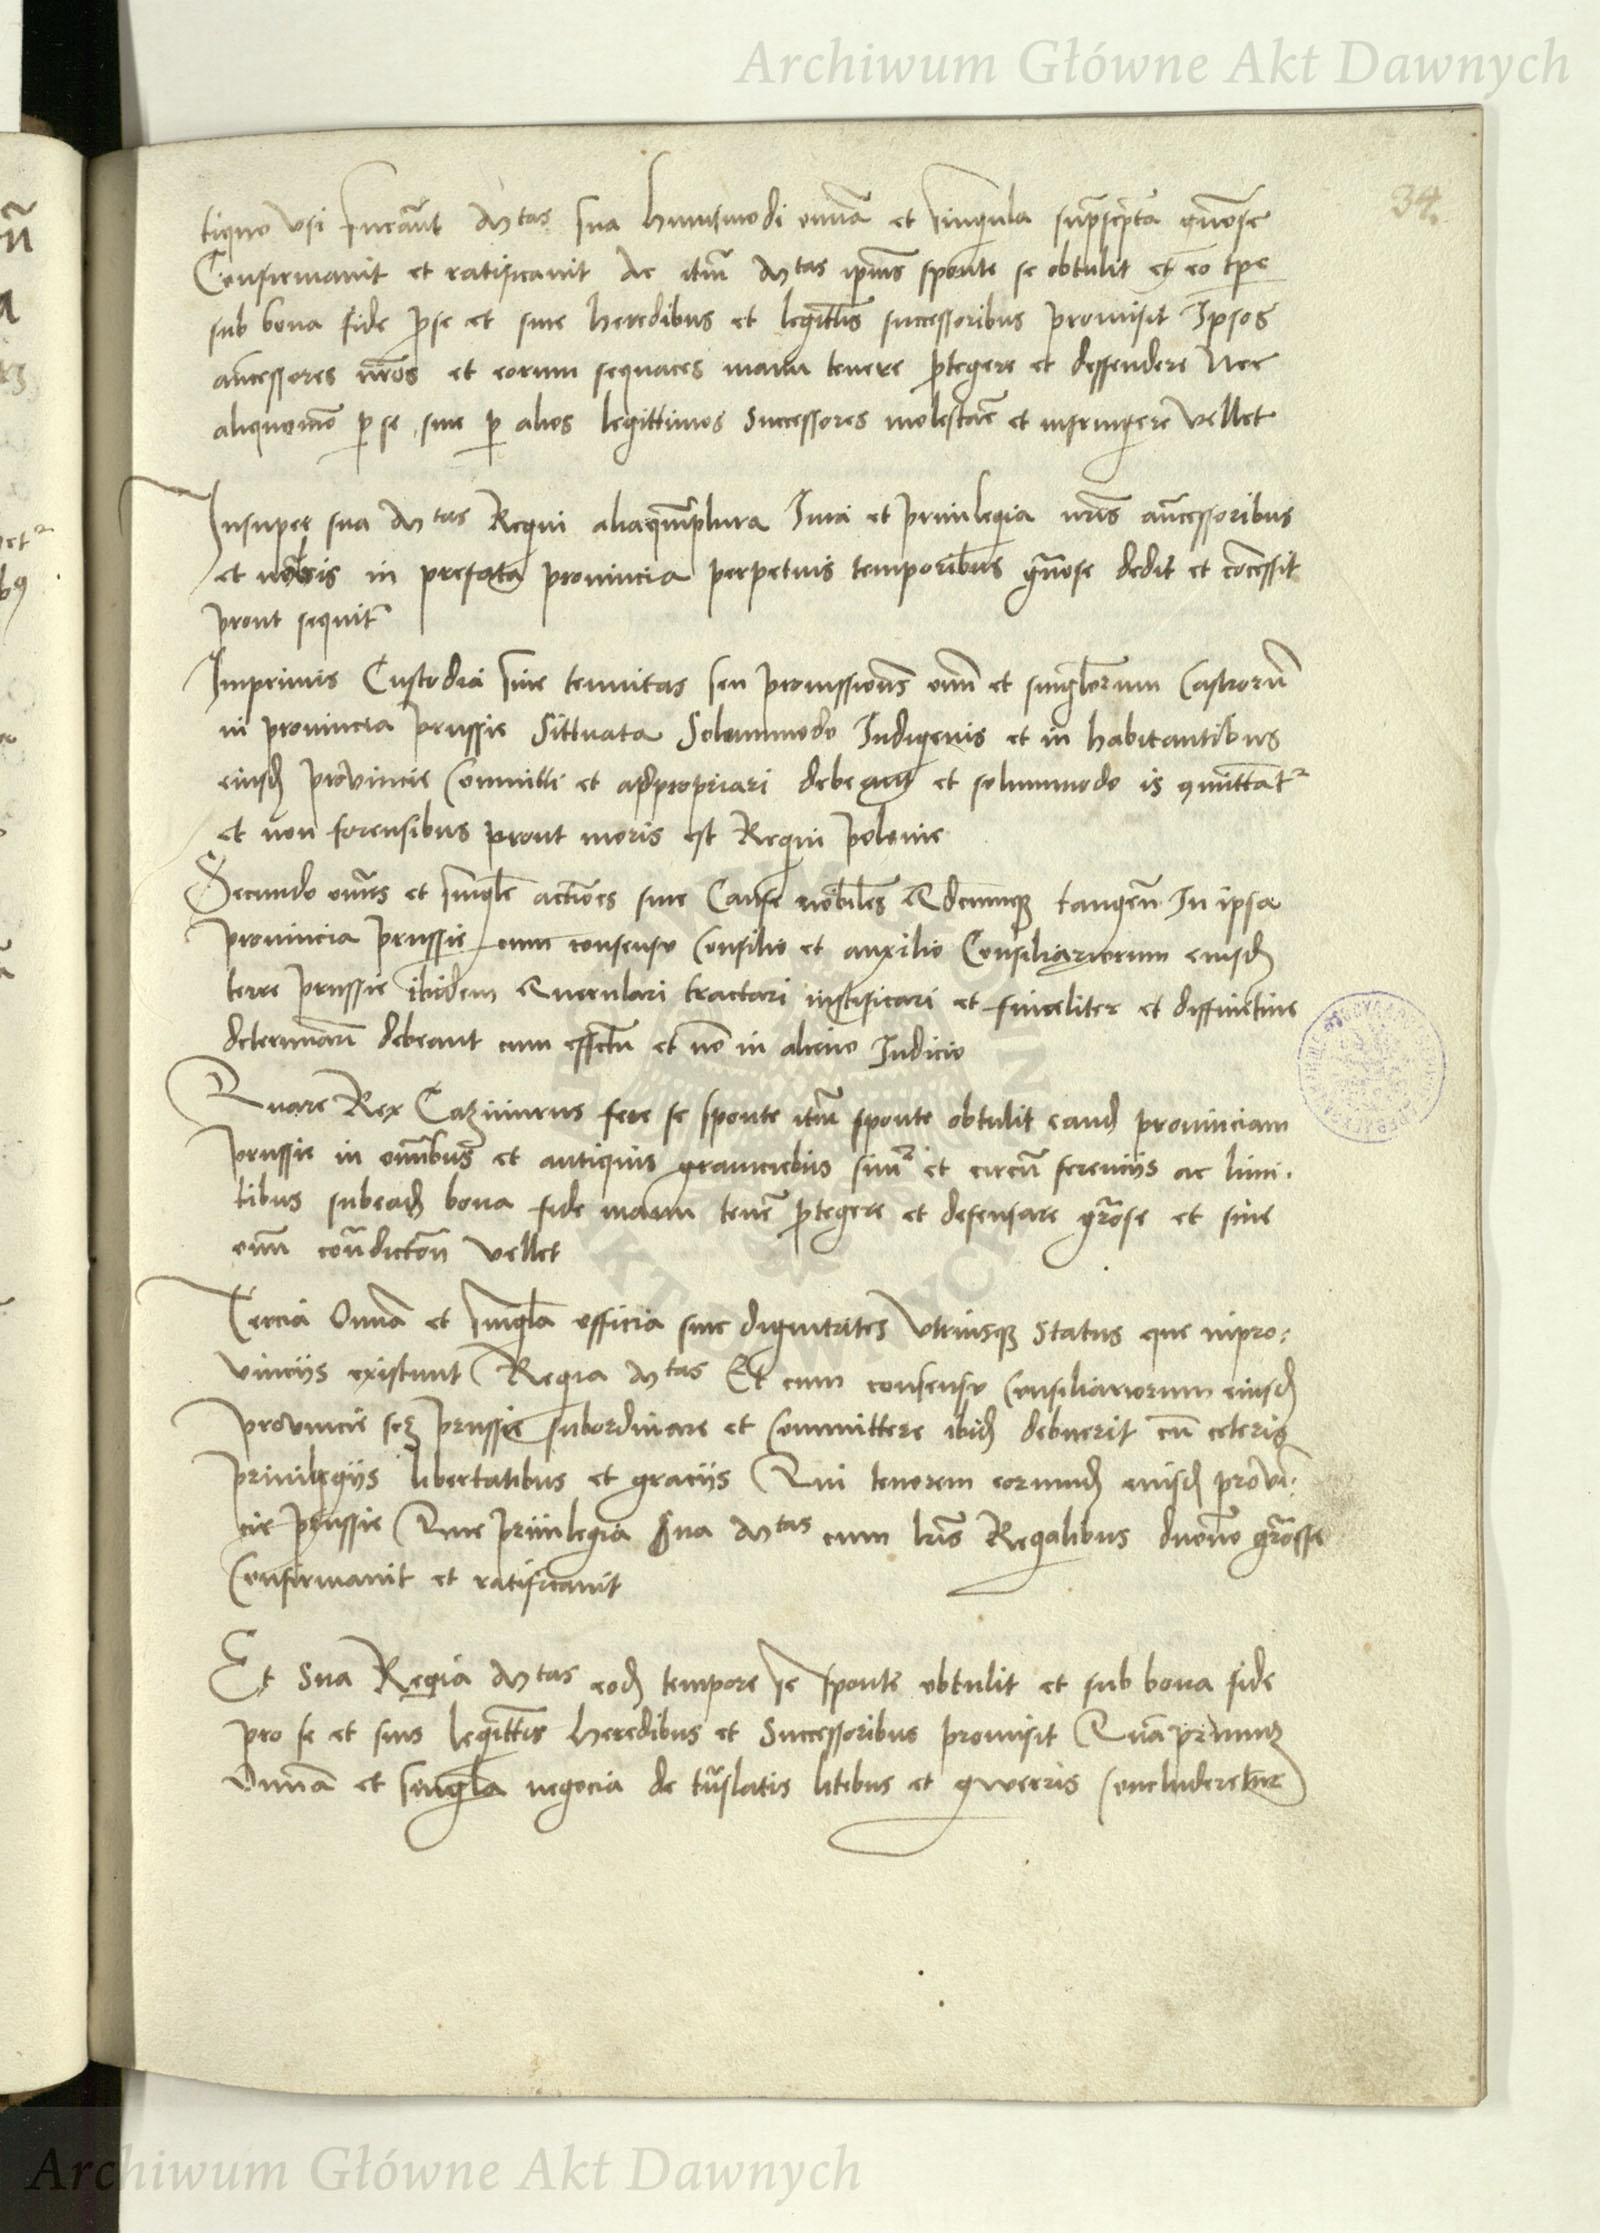 Archiwum Główne Akt Dawnych
34.
tiquo usi fuerāt Mtas sua huiusmodi om̄ia et singula supͣscripta grōse
Confirmavit et ratificavit Ac itm̄ Mtas ip̄ius sponte se obtulit et eo tp̄e
sub bona fide p̱ se et sine heredibus et legittis successoribus promisit Ipsos
an̄cessores nr̄os et eorum sequaces manu tenere p̱tegere et deffendere Nec
aliquomō p̱ se sive p̱ alios legittimos Successores molestar̄e et infringere vellet
Insuper sua Mtas Regni aliaqm̄plura Iura et privilegia nr̄is an̄cessoribus
et nobis in prefata provincia perpetuis temporibus grōse dedit et cōcessit
prout sequit̄
Imprimis Custodia sive tenutas seu provissiones om̄i et singlorum Castrorū
in provincia prussie Sittuata Solummodo Indigenis et in habitantibus
eiusd̄ provincie Committi et appropriari debeant et solummodo is ꝯmittat̄
et non forensibus prout moris est Regni polonie
Secundo om̄es et singl̄e actiōes sive Cause nobiles Qdcumqȝ tangen̄ In ipsa
provincia prussie cum consensu Consilio et auxilio Consiliariorum eiusd̄
terre prussie ibidem Querulari tractari iustificari et finaliter et diffinitive
determinari debeant cum effectu et nō in alieno Iudicio
Quare Rex Cazimirus fere se sponte itm̄ sponte obtulit eand̄ provinciam
prussie in om̄ibus et antiquis graniciebus sim̄r et circū fereniis ac limi.
tibus subead̄ bona fide manu tenē p̱tegere et defensare grōse et sine
om̄i cōtradictōe vellet
Tercia Om̄ia et singl̄a officia sive dignitates Utriusqȝ Status que inpro:
vinciis existunt Regia Mtas Et cum consensu Consiliariorum eiusd̄
provincie scȝ prussie subordinare et Committere ibid̄ debuerit cū ceteris
privilegiis libertatibus et graciis Qui tenorem eorumd̄ eiusd̄ provī:
cie prussie Que privilegia Sua Mtas cum lr̄is Regalibus grōse
Confirmavit et ratificavit
Et Sua Regia Mtas eod̄ tempore se sponte obtulit et sub bona fide
pro se et suis legittis heredibus et Successoribus promisit Quāprimuȝ
Om̄ia et singl̄a negocia de litibus et gwerris concluderetur
Archiwum Główne Akt Dawnych